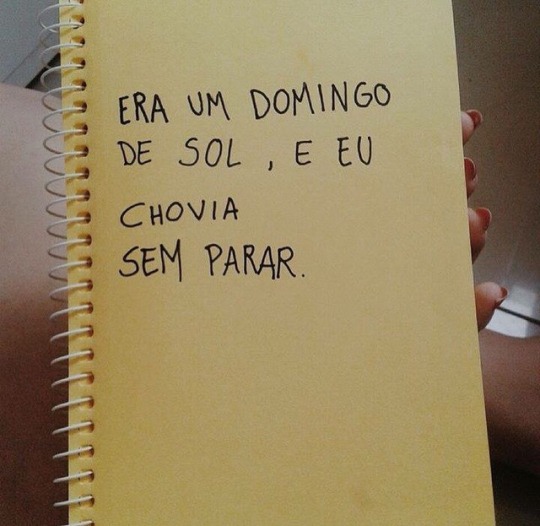 ERA UM DOMINGO
DE SOL, E EU
CHOVIA
SEM PARAR.